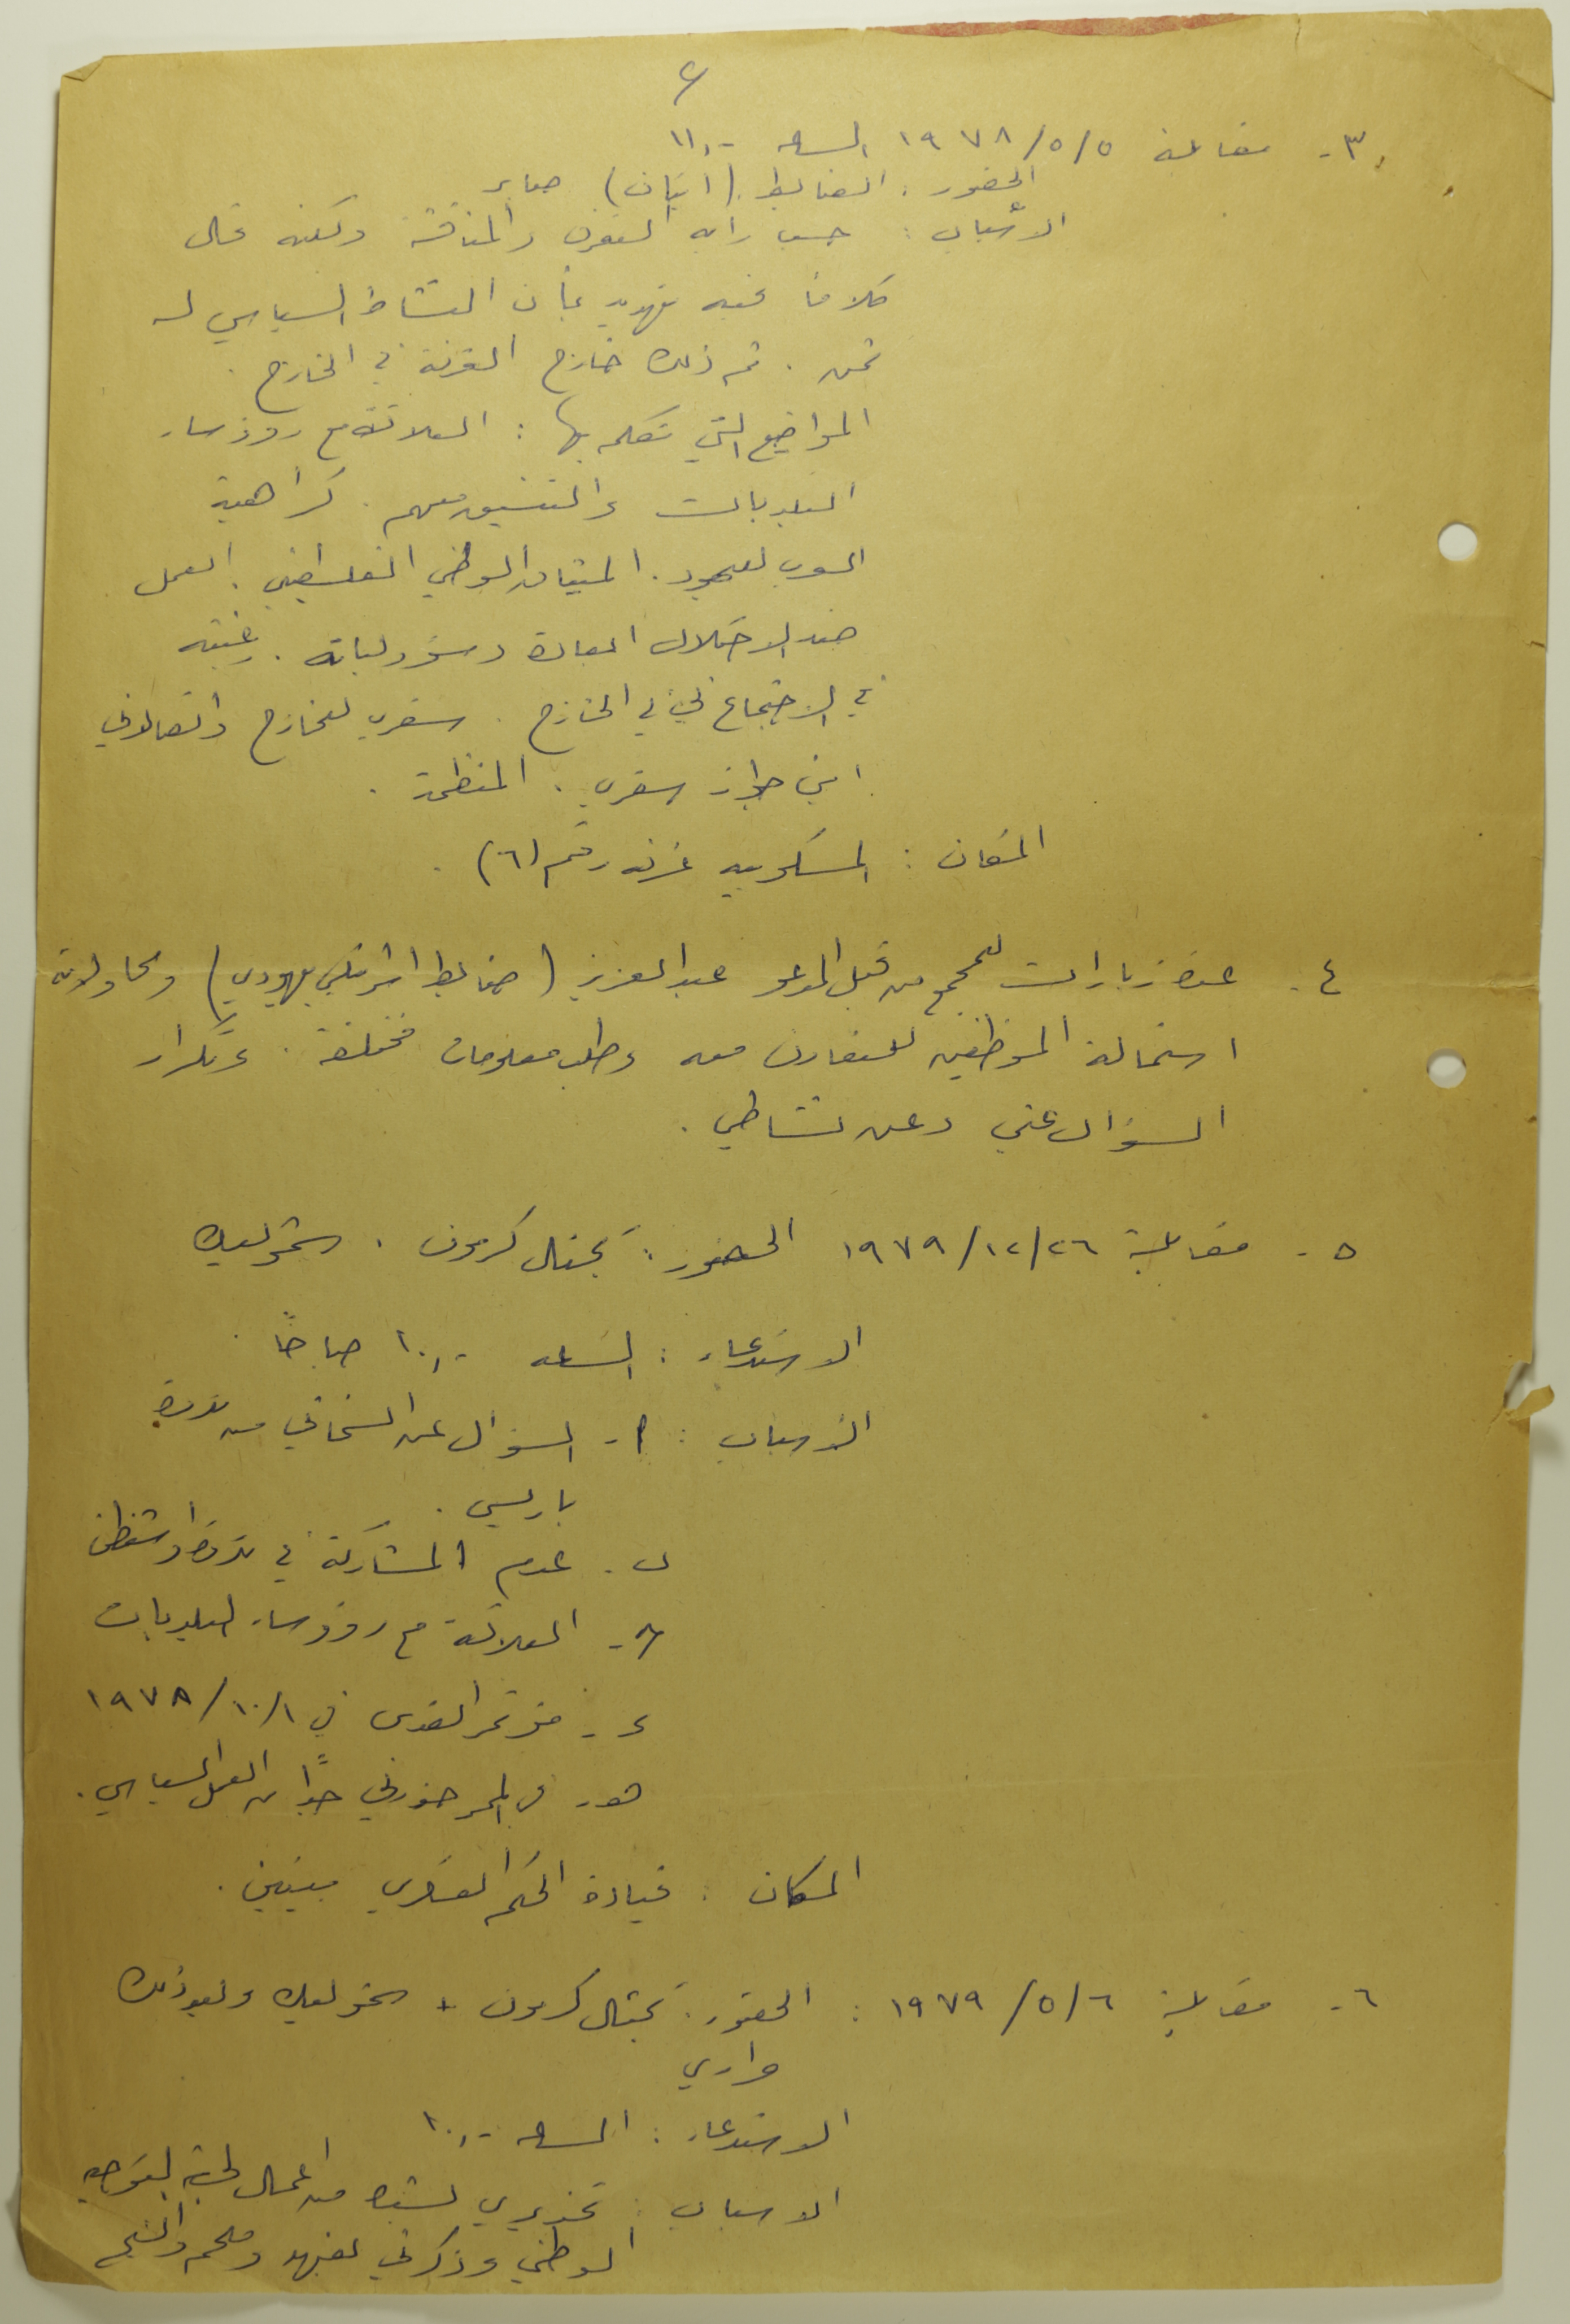 ٢
٣- مقابلة ٥/٥/١٩٧٨ الساعه ١١,٠٠
الحضور : الضابط (ايتان) صابر
الاسباب : حسب رايه التعرف والمناقشة ولكنه قال
كلاما فيه تهديد بأن النشاط السياسي له
ثمن . تم ذلك خارج الغرفة في الخارج .
المواضيع التي تكلم بها : العلاقة مع رؤوساء
البلديات والتنسيق معهم . كراهية
العرب لليهود . الميثاق الوطني الفلسطيني . العمل
ضد الاحتلال المعادة ومسؤولياته . رغبته
في الاجتماع في الخارج . سفري للخارج واتصالاتي
اين جواز سفري . المنظمة .
المكان : المسكوبيه غرفه رقم (٦) .
٤- عدة زيارات للمجمع من قبل المدعو عبد العزيز (ضابط اسرائيلي يهودي) ومحاولاته
استمالة الموظفين للتعاون معه وطلب معلومات مختلفة . وتكرار
السؤال عني وعن نشاطي .
٥- مقابلة ٢٦/١٢/١٩٧٩ الحضور : يجئال كرمون ،
الاستدعاء : الساعه ١٠,٠٠ صباحاً .
الاسباب : ا- السؤال عن انسحابي من ندوة
باريس .
ب- عدم المشاركة في ندوة واشنطن
ج- العلاقة مع رؤوساء البلديات
د- مؤتمر القدس في ١/١٠/١٩٧٨
هـ- حذرني جداً من العمل السياسي .
المكان : قيادة الحكم العسكري ببيتين .
٦- مقابلة ٦/٥/١٩٧٩ : الحضور : يجئال كرمون + وبعد ذلك
الاستدعاء : الساعه ١٠,٠٠
الاسباب : تحذيري من اعمال لجنة التوجيه
الوطني وذكرني بفهد وملحم والشيخ